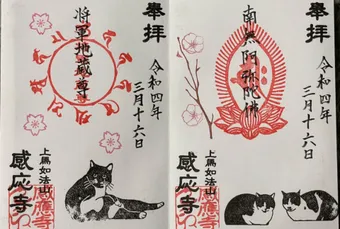 奉拝
南無阿弥陀佛
令和四年
三月十六日
上馬如法山
感応寺
奉拝
将軍地蔵尊
令和四年
三月十六日
上馬如法山
感応寺